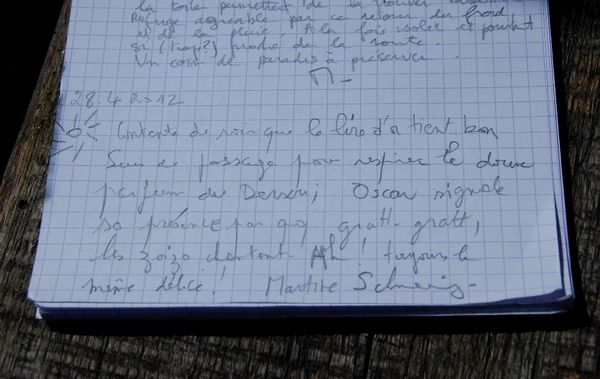 la toile permettent de la trouver
Refuge agréable par ce retour du froid
et de la pluie. A la fois isolée et pourtant
si (trop?) proche de la route.
Un coin de paradis à préserver.
28.4.2012
Contente de voir que le livre d'or tient bon
Suis de passage pour respirer le doux
parfum du Dersou; Oscar signale
sa présence par qq gratt-gratt,
les zozio chantent. Ah! toujours le
même délice! Martine